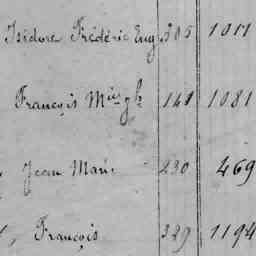 Isidore Frédéric Eug. 305 1011
François Mie 141 1081
Jean Marie 230 469
François 329 1194